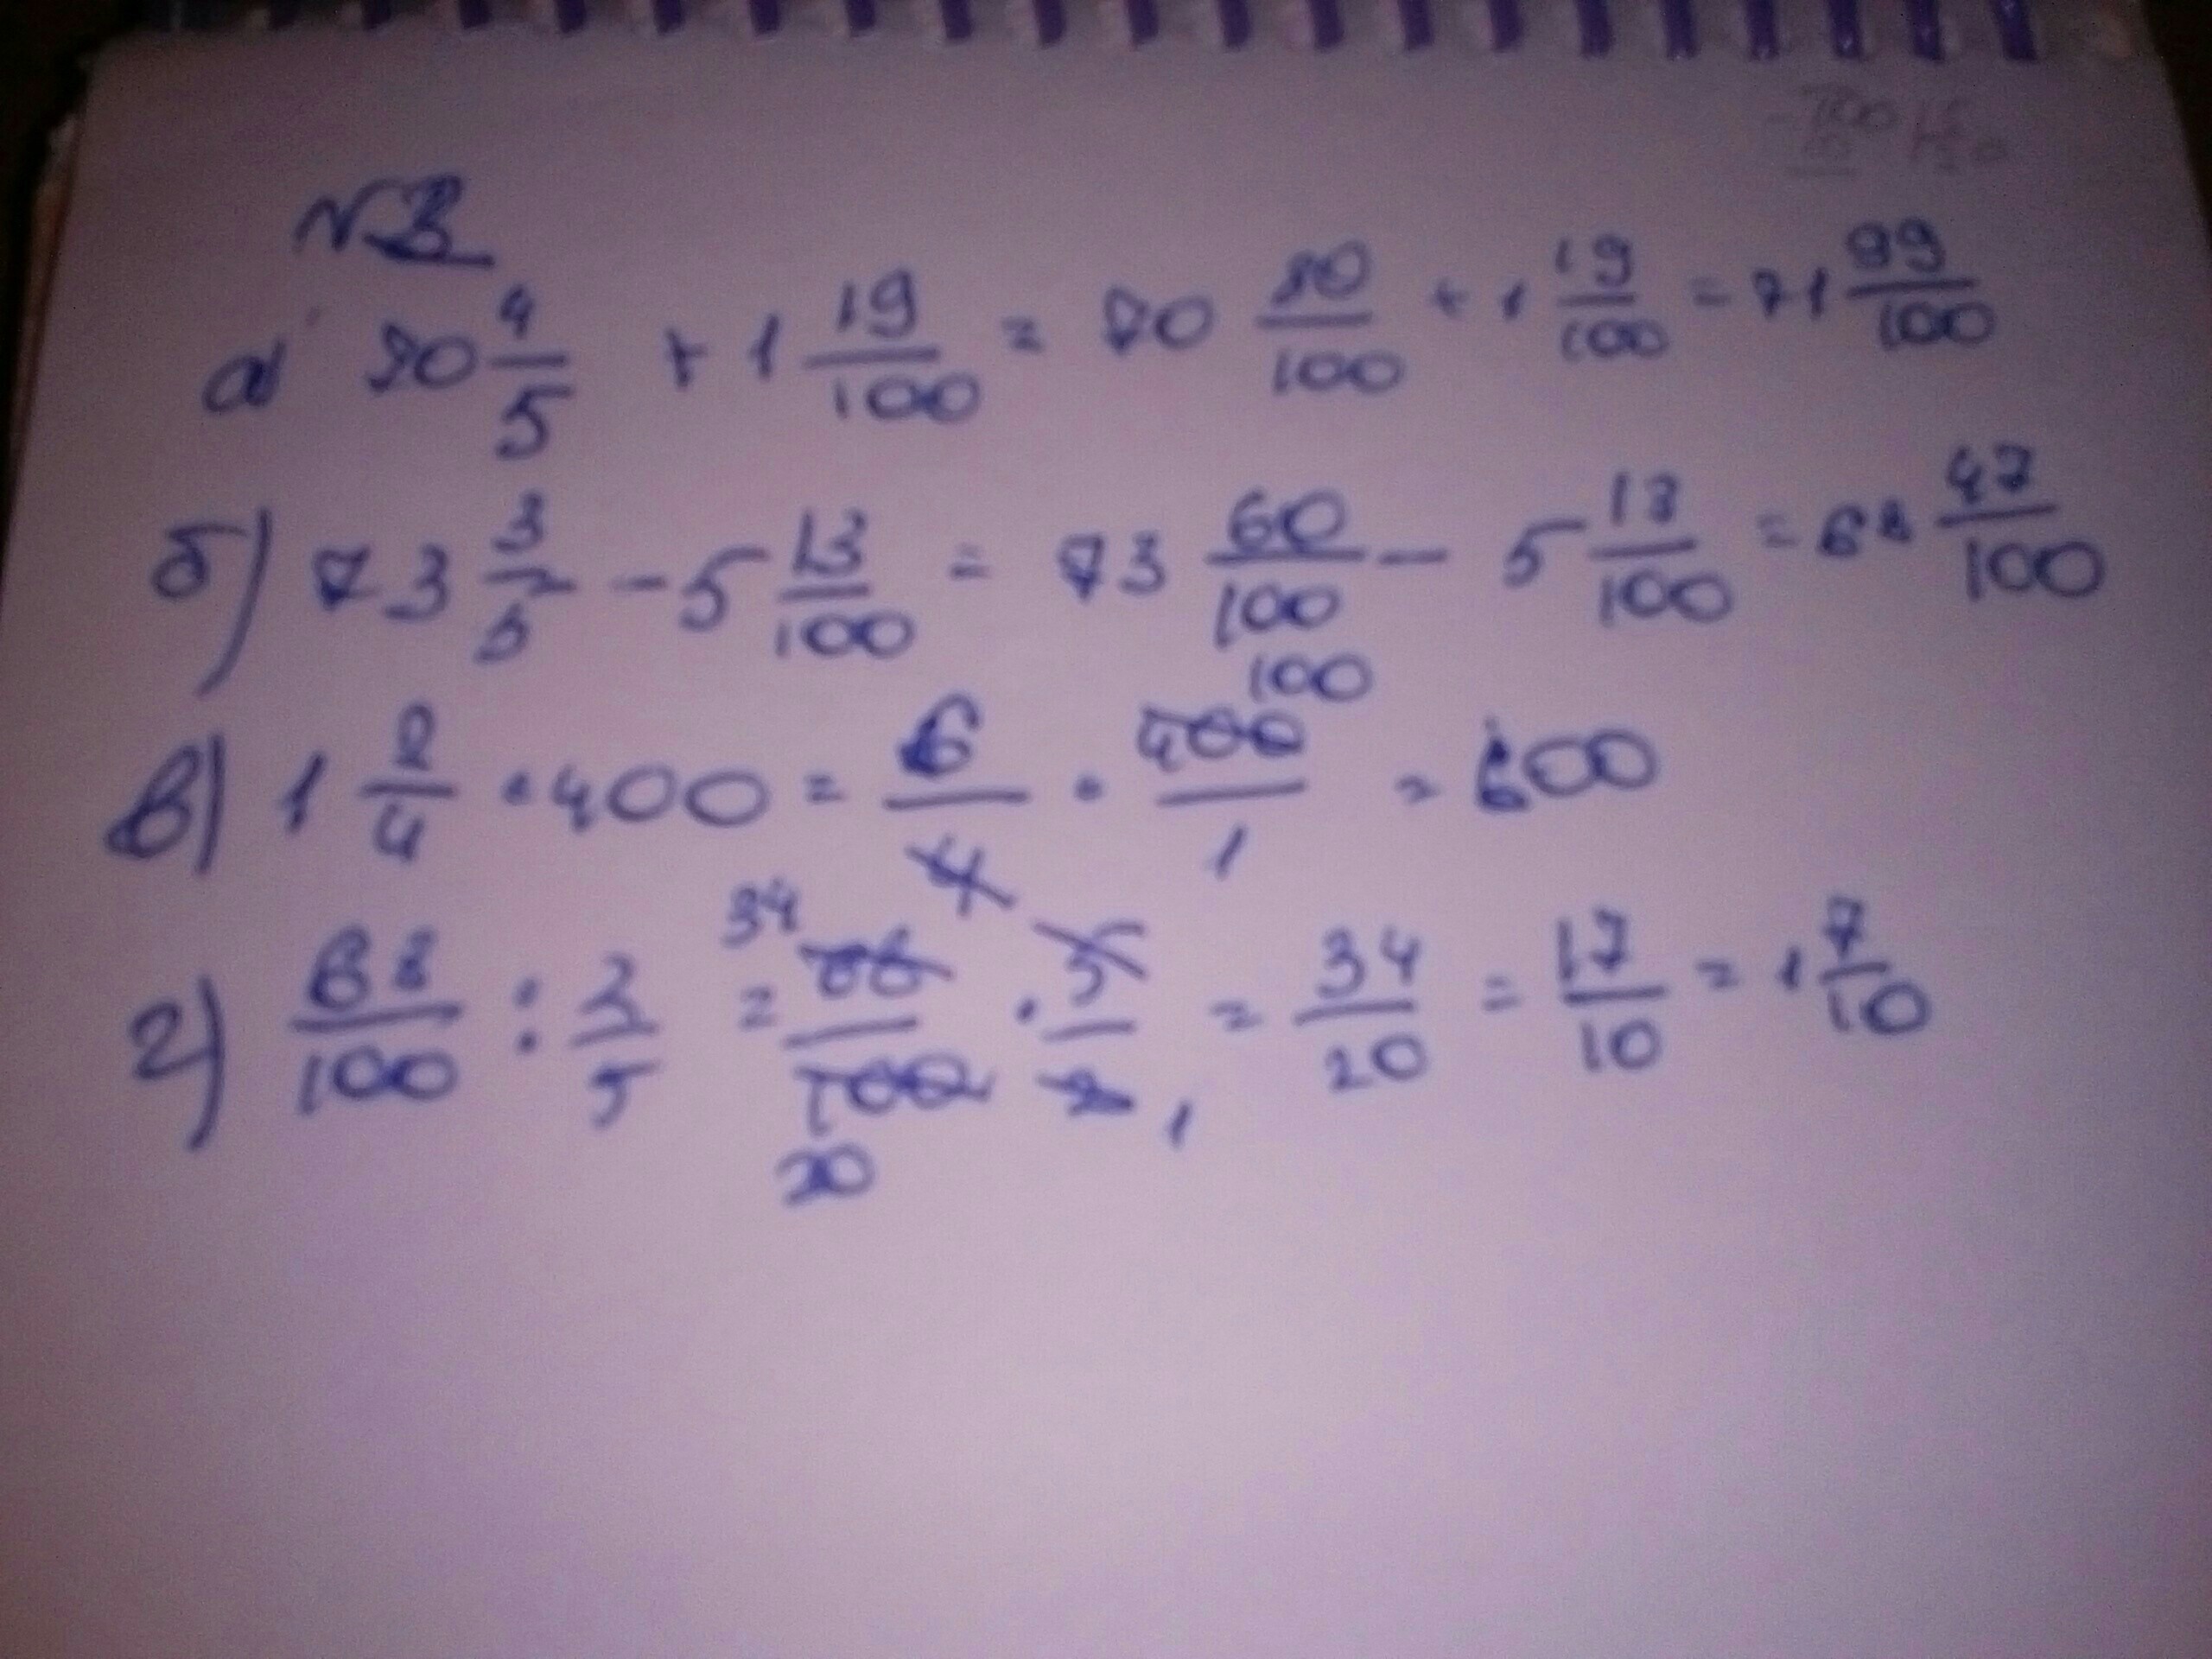 №3
а) 70 4/5 + 1 19/100 = 70 80/100 + 1 19/100 = 71 99/100
б) 73 3/5 - 5 13/100 = 73 60/100 - 5 13/100 = 68 47/100
100
в) 1 2/4 · 400 = 6/4 · 400/1 = 600
34
г) 68/100 : 2/5 = 68/100 · 5/2 = 34/20 = 17/10 = 1 7/10
20 1